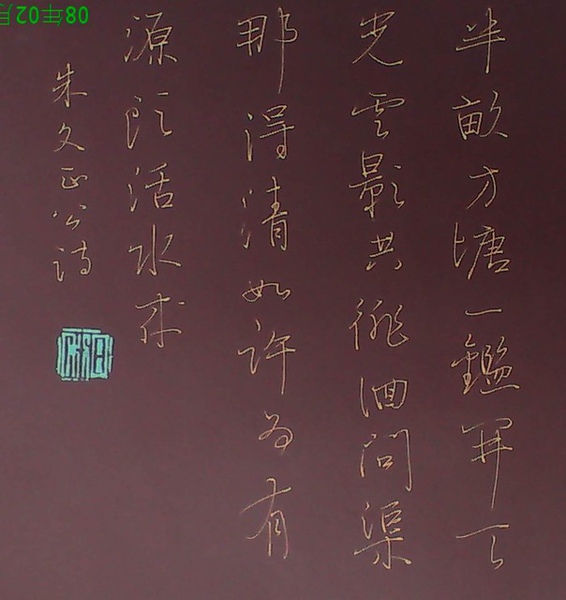 半畝方塘一鑑開天
光雲影共徘徊問渠
那得清如許為有
源頭活水來
朱文正公詩
08年02月